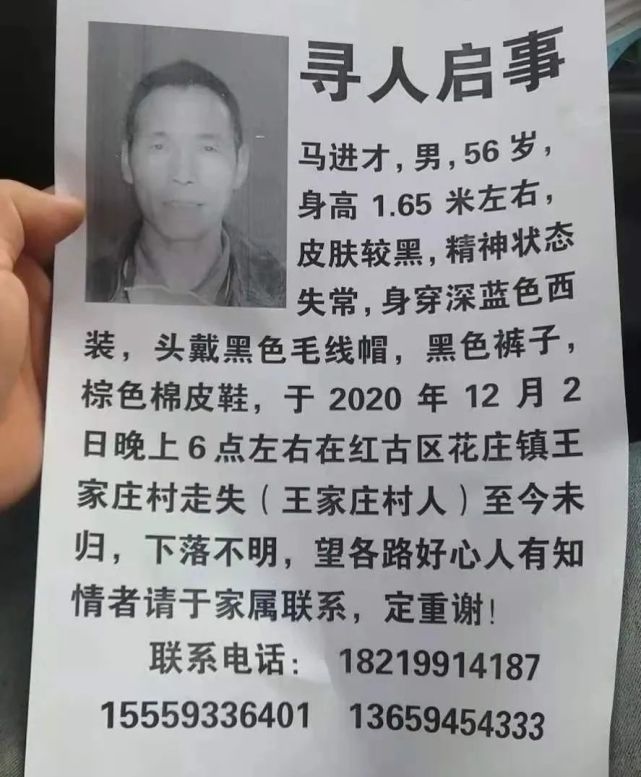 寻人启事
马进才，男，56岁，
身高1.65米左右，
皮肤较黑，精神状态
失常，身穿深蓝色西
装，头戴黑色毛线帽，黑色裤子，
棕色棉皮鞋，于2020年12月2
日晚上6点左右在红古区花庄镇王
家庄村走失（王家庄村人）至今未
归，下落不明，望各路好心人有知
情者请于家属联系，定重谢！
联系电话：18219914187
15559336401 13659454333